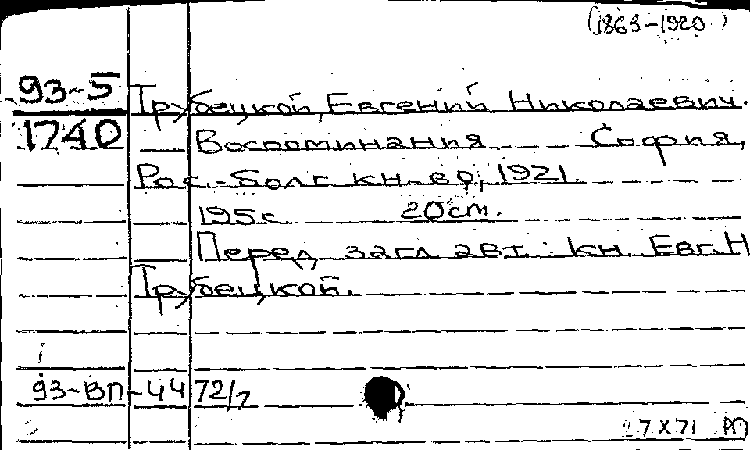 (1863-1920)
93-5 Трубецкой, Евгений Николаевич.
1740 Воспоминания София,
Рос.-болг. кн-во, 1921.
195 с. 20 см.
Перед загл. авт.: Кн. Евг. Н.
Трубецкой.
93-ВП-4472/7
27 X 71